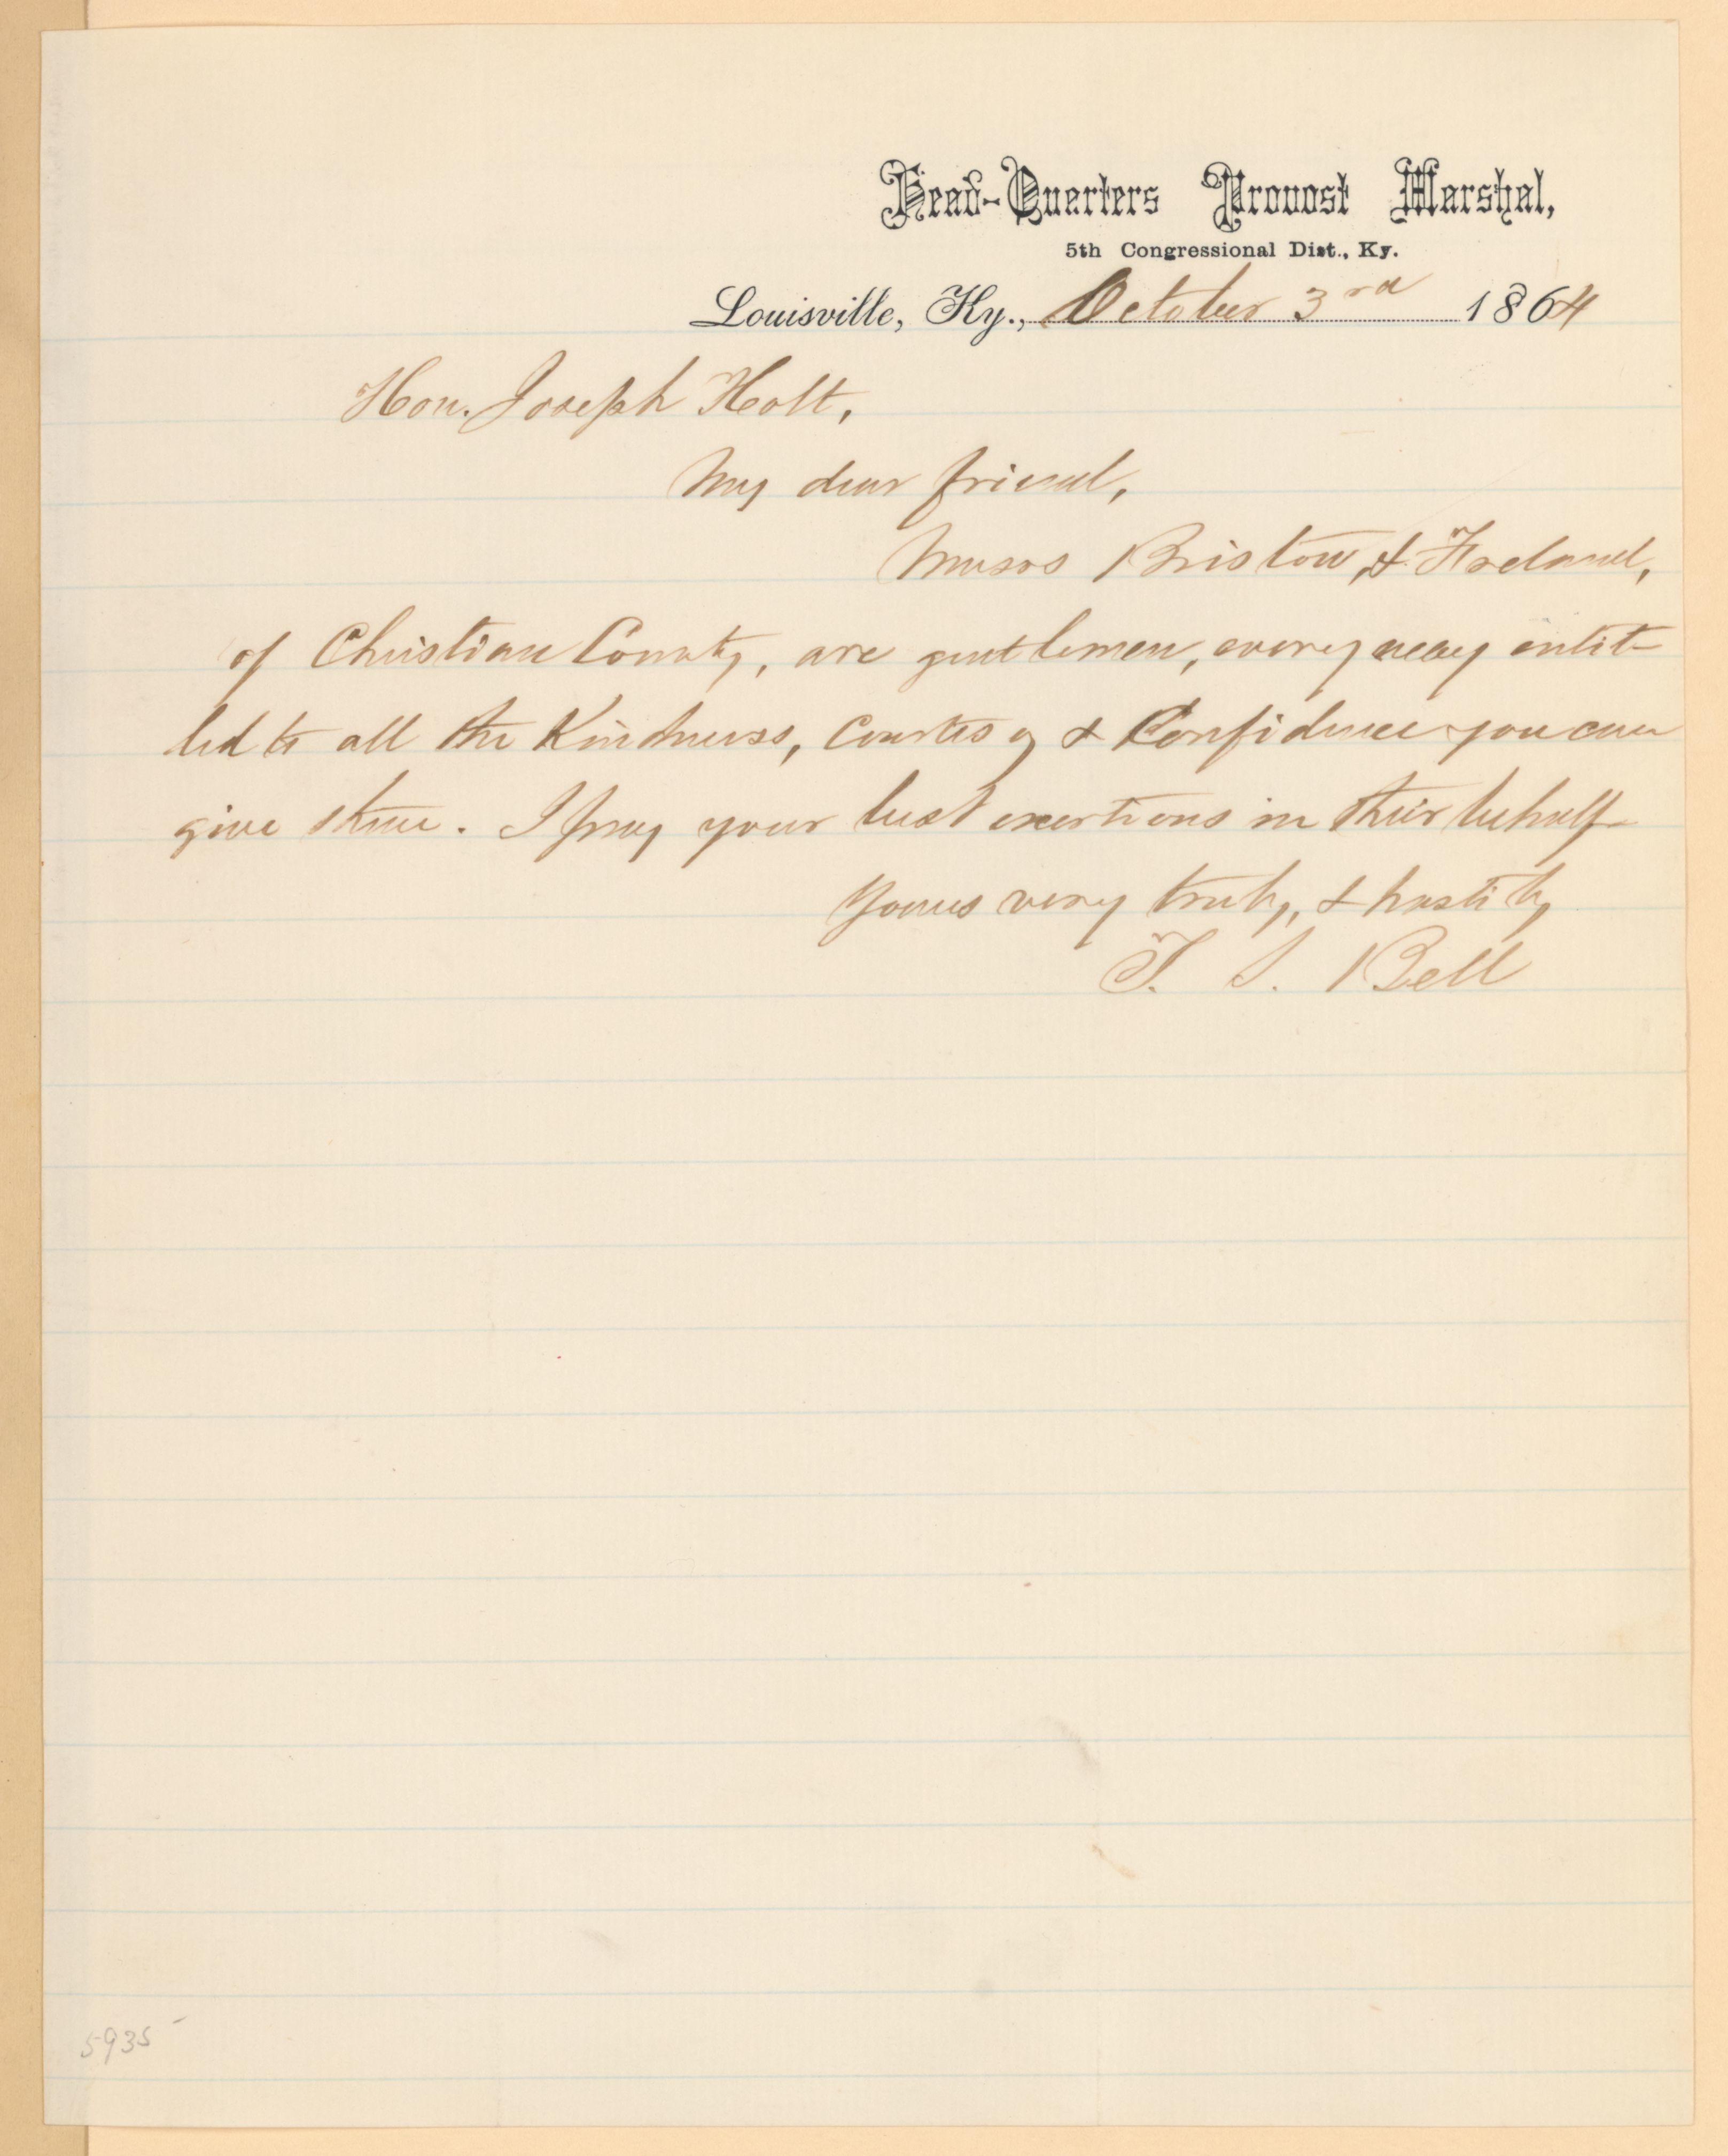 Head-Quarters Provost Marshal,
5th Congressional Dist., Ky.
Louisville, Ky., October 3rd 1864
Hon. Joseph Holt,
My dear friend,
Messrs Bristow, &
of Christian County, are gentlemen, every way entit-
led to all the Kindness, Courtesy & Confidence you can
give them. I pray your best exertions in their behalf
Yours very truly, & hastily
T. S. Bell
5935